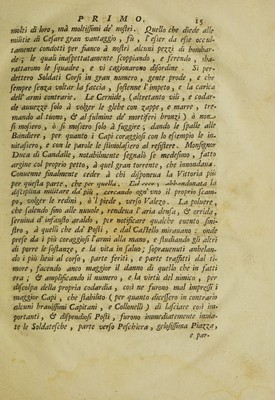 PRIMO. 15
molti di loro, mà moltissimi de' nostri. Quello che diede alle
militie di Cesare gran vantaggio, fù, l'esser da esse occul-
tamente condotti per fianco à nostri alcuni pezzi di bombar-
de; le quali inaspettatamente scoppiando, e ferendo, sba-
rattarono le squadre, e vi cagionarono disordine. Si per-
dettero Soldati Corsi in gran numero, gente prode, e che
sempre senza voltar la faccia, sostenne l'impeto, e la carica
dell'armi contrarie. Le Cernide, (altretanto vili, e coda-
de auuezze solo à volger le glebe con zappe, e marre, tre-
mando al tuono, & al fulmine de' mortiferi bronzi) ò non
si mosero, ò si mosero solo à fuggire; dando le spalle alle
Bandiere, per quanto i Capi coraggiosi con lo esempio le in-
uitassero, e con le parole le stimolassero al resistere. Monsignor
Duca di Candalle, notabilmente segnalò se medesimo, fatto
argine col proprio petto, à quel gran torrente, che innondaua.
Conuenne finalmente ceder à chi disponeua la Vittoria più
per questa parte, che per quella. Ed ecco; abbandonata la
disciplina militare da più, cercando ogn'uno il proprio scam-
po, volger le redini, à 'l piede, verso Valezo. La poluere,
che salendo sino alle nuuole, rendeua l'aria densa, & orrida,
seruiua d'infausto araldo, per notificare qualche euento sini-
stro, à quelli che dà Posti, e dal Castello mirauano: onde
prese da i più coraggiosi l'armi alla mano, e studiando gli altri
di porre le sostanze, e la vita in saluo; soprauenuti anhelan-
do i più lieui al corso, parte feriti, e parte traffitti dal ti-
more, facendo anco maggior il danno di quello che in fatti
era; & amplificando il numero, e la virtù del nimico, per
discolpa della propria codardia, così ne furono mal impressi i
maggior Capi, che stabilito (per quanto dicessero in contrario
alcuni brauissimi Capitani, e Collonelli) di lasciare così im-
portanti, & dispendiosi Posti, furono immediatamente inuia-
te le Soldatesche, parte verso Peschiera, gelosissima Piazza,
e par-